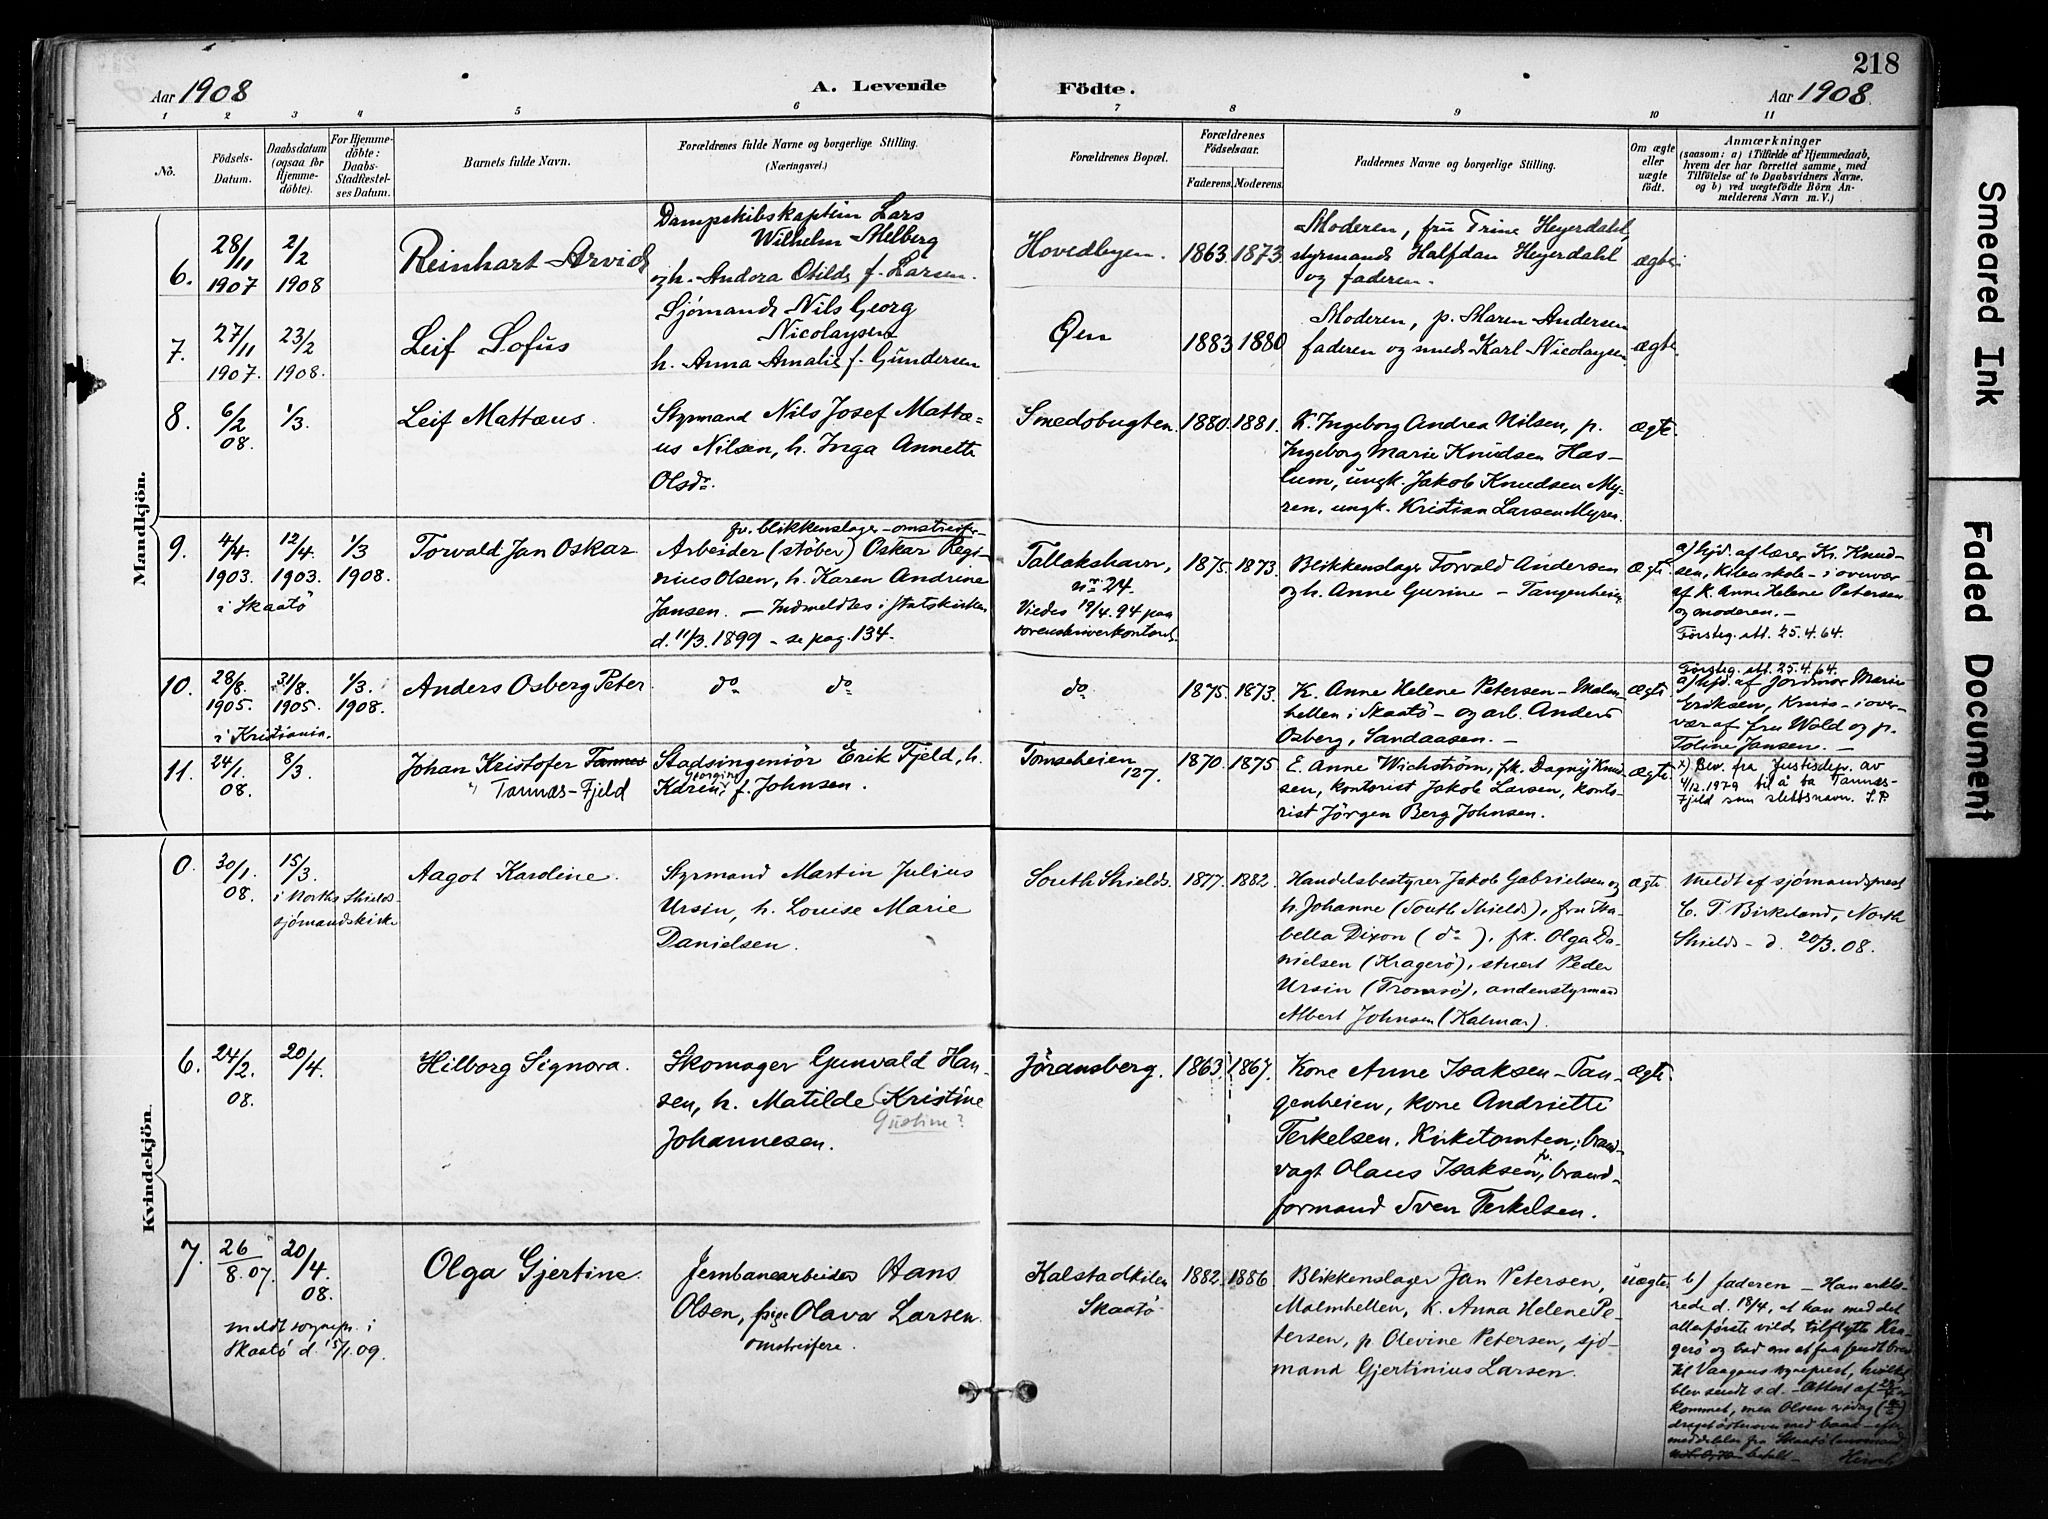 218
Aar 1908
A. Levende
Födte.
Aar 1908.
1 2 3 4 5 6 7 8 9 10 11
No.
Födsels-
Datum.
Daabsdatum
(ogsaa for
Hjemme-
döbte).
For Hjemme-
döbte:
Daabs-
Stadfæstel-
ses Datum.
Barnets fulde Navn.
Forældrenes fulde Navne og borgerlige Stilling.
(Næringsvei.)
Forældrenes Bopæl.
Forældrenes
Födselsaar.
Faderens. Moderens.
Faddernes Navne og borgerlige Stilling.
Om ægte
eller
uægte
födt.
Anmærkninger
(saasom: a) i Tilfælde af Hjemmedaab,
hvem der har forrettet samme, med
Tilföielse af to Daabsvidners Navne.
og b) ved uægtefödte Börn An-
melderens Navn m. V.)
Mandkjön.
6.
28/11
1907
2/2
1908
Reinhart Arvid
Dampskibskaptein Lars
Wilhelm Melberg
og h. Andora Otilde f. Larsen.
Hovedbyen.
1863. 1873.
Moderen, fru Trine Heyerdahl,
styrmand Halfdan Heyerdahl
og faderen.
ægte.
7.
27/11
1907.
23/2
1908.
Leif Lofus
Sjømand Nils Georg
Nicolaysen
h. Anna Amalie f. Gundersen
Øen
1883. 1880
Moderen, p. Maren Andersen
faderen og smed Karl Nicolaysen.
ægte.
8.
6/2
08.
1/3.
Leif Mattæus.
Styrmand Nils Josef Mattæ=
us Nilsen, h. Inga Annette
Olsdr.
Smedsbugten.
1880. 1881.
K. Ingeborg Andrea Nilsen, p.
Ingeborg Marie Knudsen Has-
lum, ungk. Jakob Knudsen My-
ren, ungk. Kristian Larsen Myren.
ægte.
9.
4/4.
1903.
12/4.
1903.
i Skaatö
1/3
1908.
Torvald Jan Oskar.
fv. blikkenslager - omstreifer
Arbeider (stöber) Oskar Regi-
nius Olsen, h. Karen Andrine
Jansen. — Indmeldtes i statskirken
d. 11/3. 1899 - se pag. 134.
Tallakshavn,
nr. 24.
Viedes 19/4. 94 paa
sorenskriverkontoret.
1875. 1873.
Blikkenslager Torvald Andersen
og h. Anne Gurine - Tangenheien.
Ægte
a) hjd. af lærer Kr. Knud-
sen, Kilen skole - i overvær
af k. Anne Helene Petersen
og moderen. -
Försteg. att. 25.4.64.
10.
28/8.
1905.
31/8.
1905.
i Kristiania.
1/3.
1908.
Anders Osberg Peter.
do do
do
1875. 1873.
K. Anne Helene Petersen - Malm-
hellen i Skaatö - og arb. Anders
Osberg, Sandaasen. -
Ægte
Försteg. att. 25.4.64.
a) hjd. af Jordmor Marie
Eriksen, Krnia - i over-
vær af fru Wold og p.
Toline Jansen. -
11.
24/1.
08.
8/3.
Johan Kristofer Tannes
x) Tannæs-Fjeld
Stadsingeniör Erik Fjeld, h.
Georgine
Karine f. Johnsen.
Tomseheien
127.
1870. 1875
E. Anne Wichström, frk. Dagny Knud-
sen, kontorist Jakob Larsen, konto-
rist Jörgen Berg Johnsen.
Ægte.
x) Bev. fra Justisdep. av
4/12.1979 til å ta Tannæs-
Fjeld som slektsnavn. S.P.
Kvindekjön.
0.
30/1.
08.
15/3.
i North Shields
sjömandskirke
Aagot Karoline.
Styrmand Martin Julius
Ursin, h. Louise Marie
Danielsen.
South Shields.
1877. 1882.
Handelsbestyrer Jakob Gabrielsen og
h. Johanne (South Shields), fru Isa-
bella Dixon (do), frk. Olga Da-
nielsen (Kragerö), stuert Peder
Ursin (Tromsö), andenstyrmand
Albert Johnsen (Kalmar).
Ægte.
Meldt af sjömandsprest
C. T. Birkeland, North
Shields - d. 20/3. 08.
6.
24/2.
08.
20/4.
Hilborg Signora.
Skomager Gunvald Han-
sen, h. Matilde (Kristine
Gustine?
Johannesen.
Jöransberg.
1863. 1867.
Kone Anne Isaksen - Tan-
genheien, kone Andriette
Terkelsen, Kirketomten, brand-
vagt Olaus Isaksen, fv. brand-
formand Sven Terkelsen.
Ægte.
7.
26
8.07.
20/4.
08.
meldt sognepr. i
Skaatö d. 15/1.09.
Olga Gjertine.
Jernbanearbeider Hans
Olsen, pige Olava Larsen.
omstreifere.
Kalstadkilen
Skaatö
1882. 1886
Blikkenslager Jan Petersen,
Malmhellen, k. Anna Helene Pe-
tersen, p. Olevine Petersen, sjö-
mand Gjertinius Larsen.
uægte.
b) faderen - Han erklæ-
rede d. 18/4, at han med det
allerförste vilde tilflytte Kra-
gerö og bad om at faa sendt brev
til Vaagens sogneprest, hvilket
blev sendt s.d. - Attest af
kommet, men Olsen
med baad
meddelelse fra Skaatö
betalt -
Smeared Ink
Faded Document